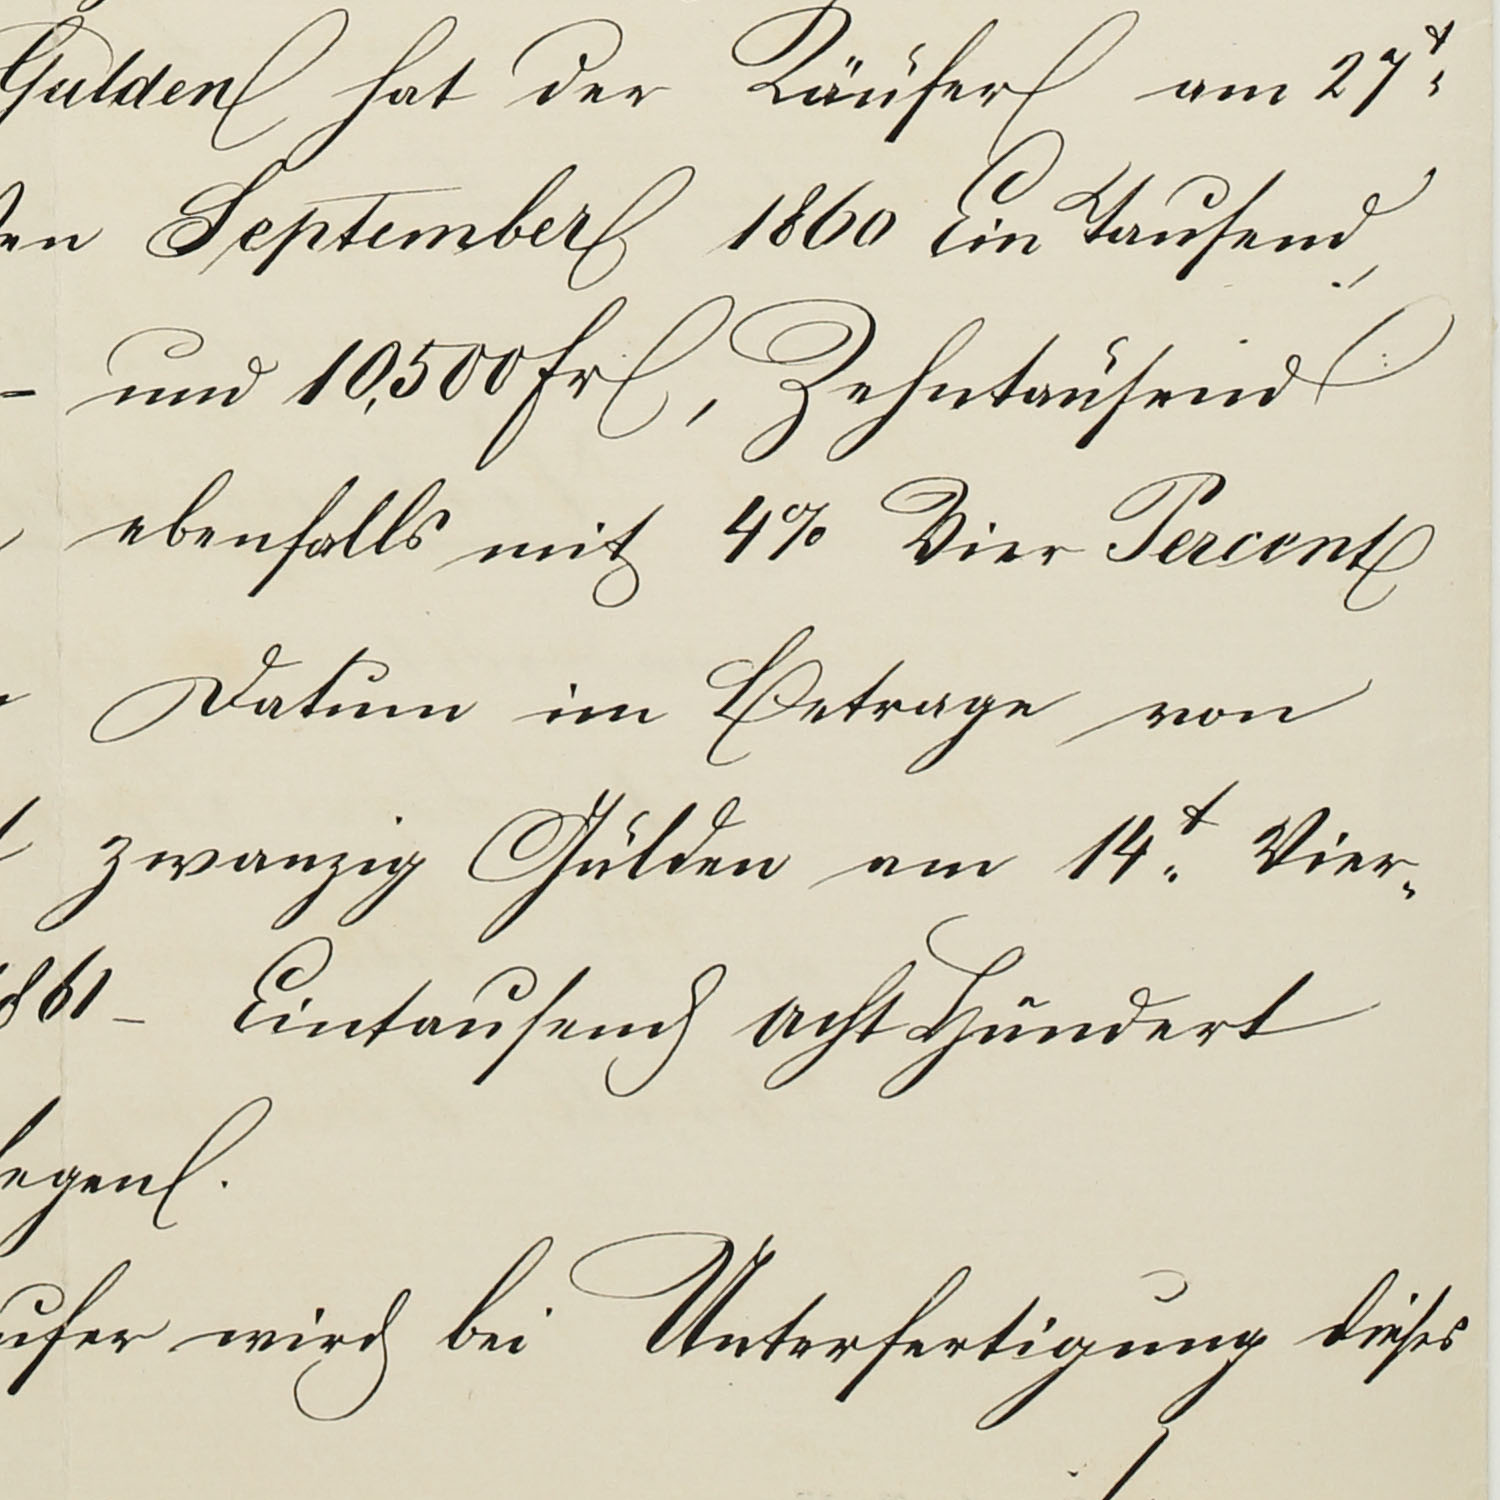 Gulden hat der Käufer am 27t
ten September 1860 Ein Tausend
- und 10,500 fr, Zehntausend
ebenfalls mit 4% Vier Percent
Datum im Betrage von
zwanzig Gulden am 14t Vier-
1861 - Eintausend acht Hundert
legen.
ufer wird bei Unterfertigung dieses